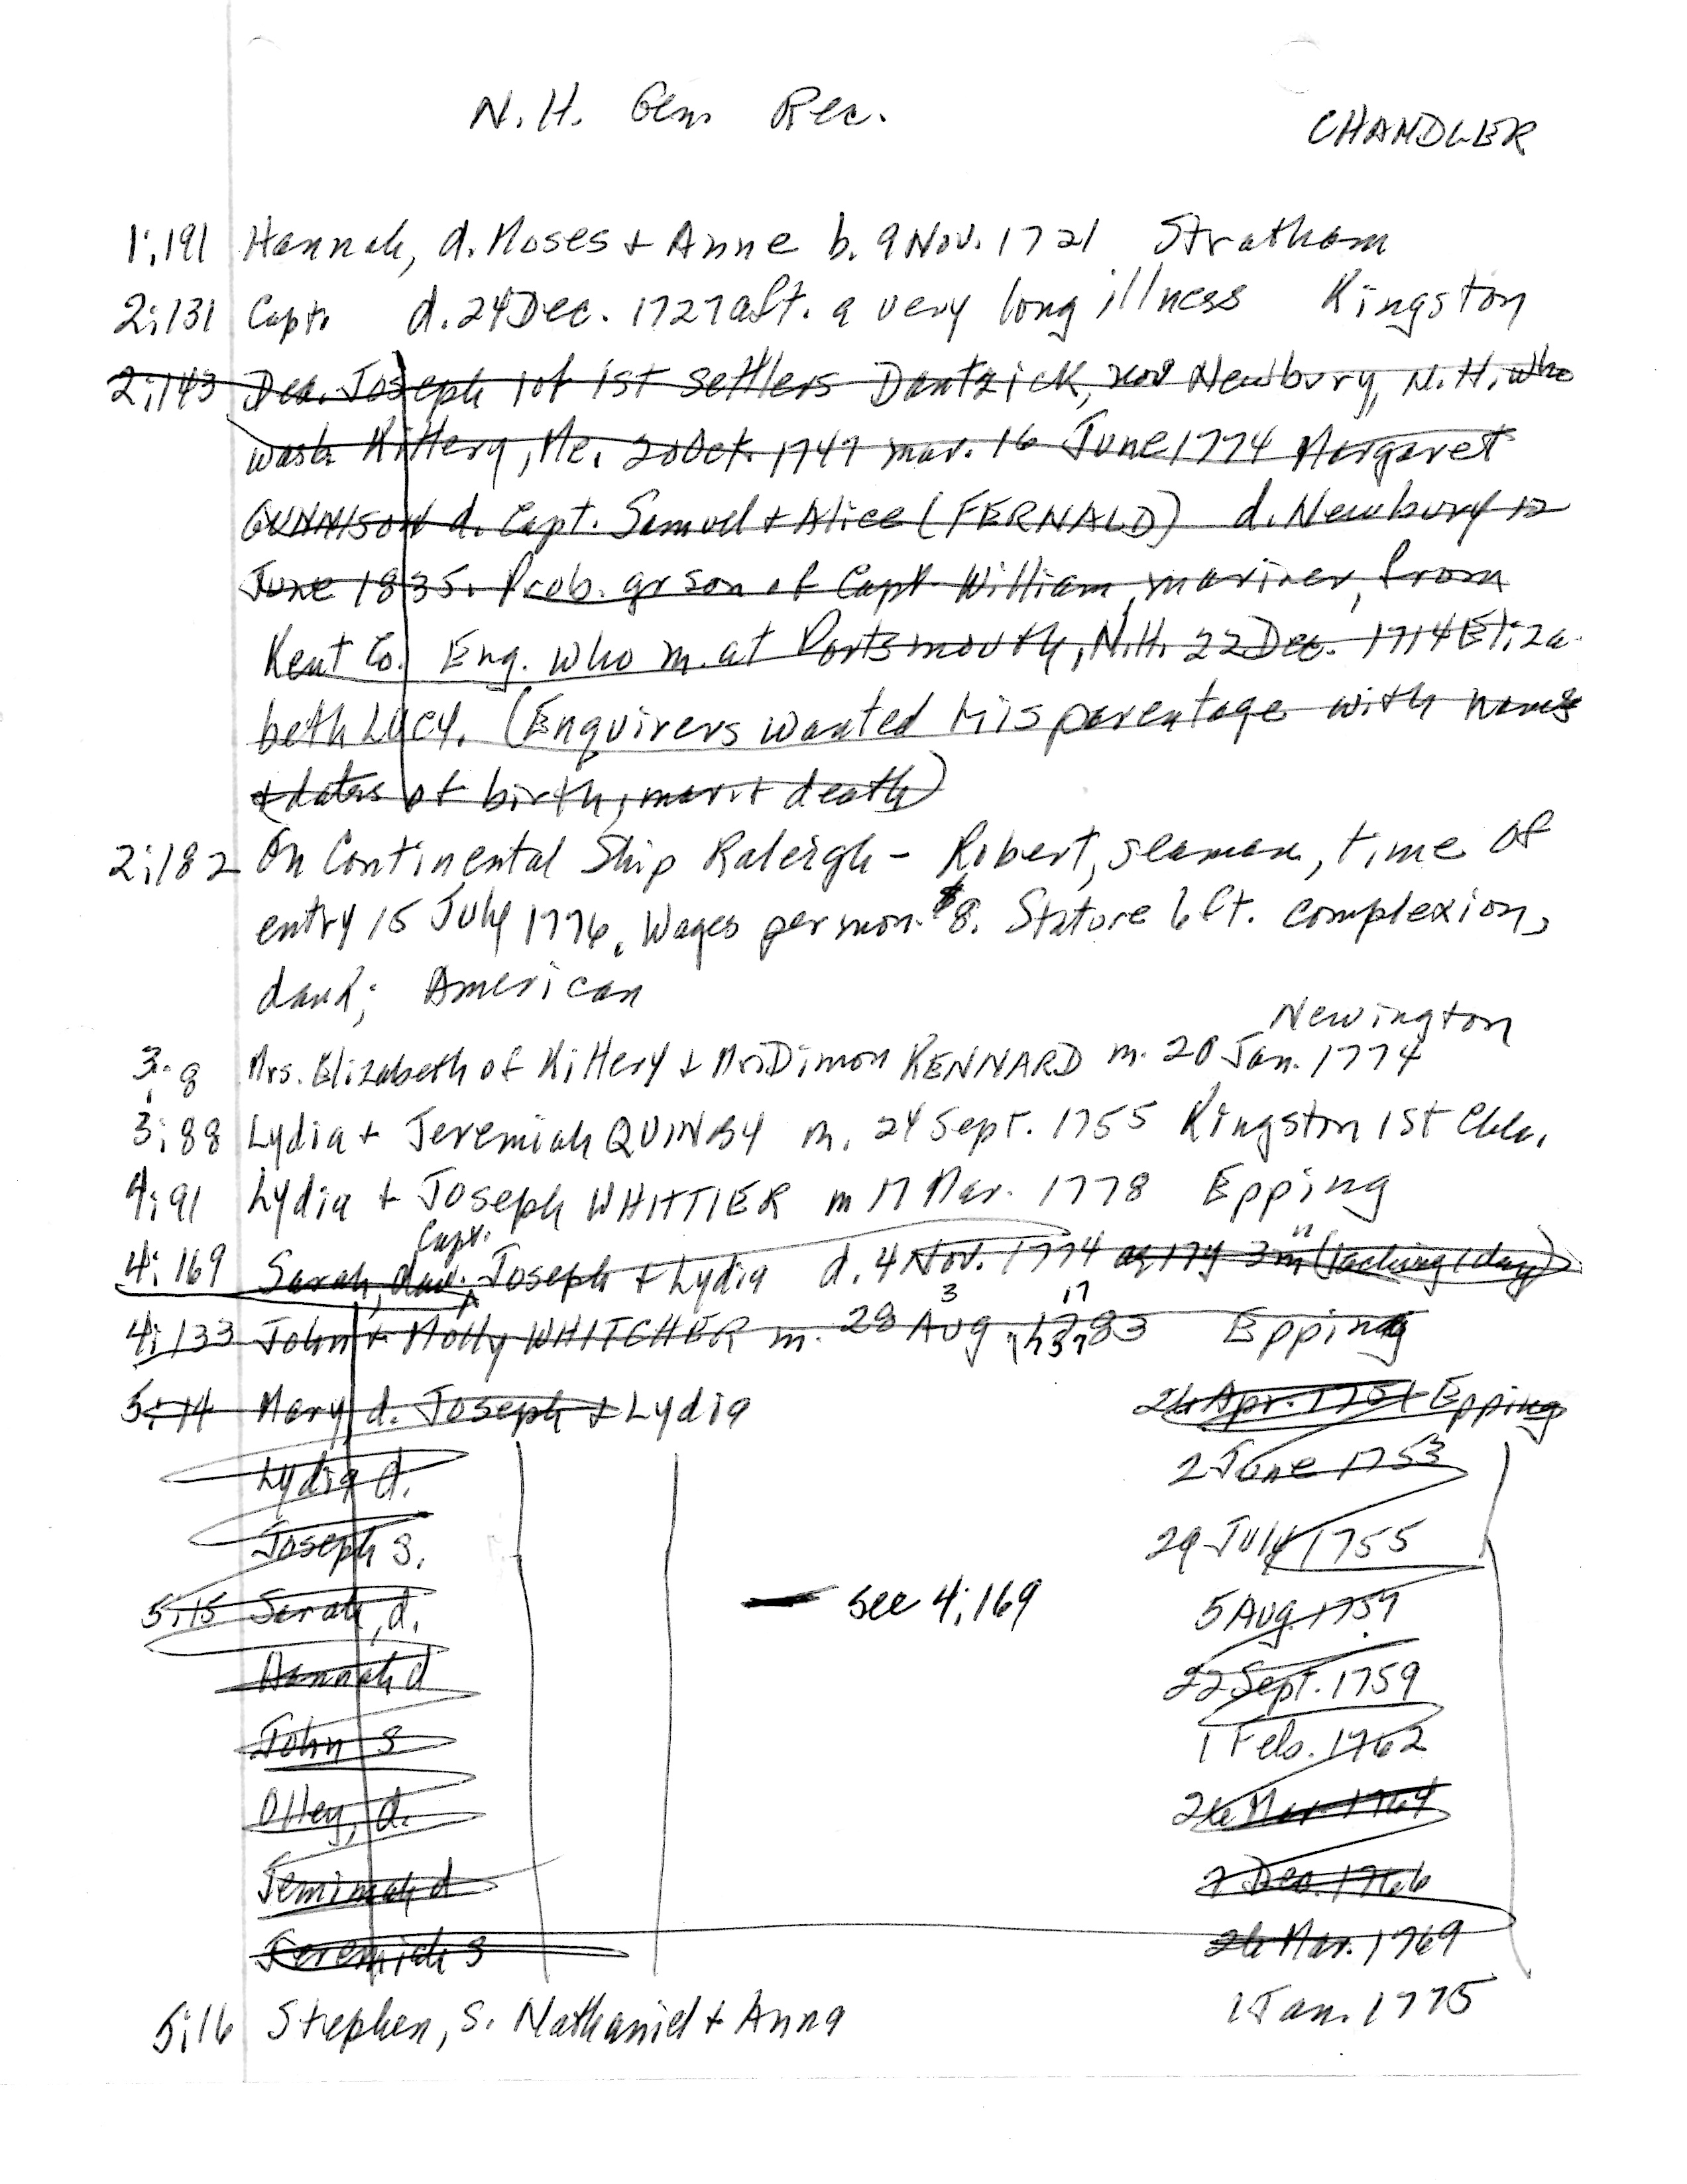 N.H. Gen. Rec.
CHANDLER
1:191 Hannah, d. Moses + Anne b. 9 Nov. 1721 Stratham
2:131 Capt. d. 24 Dec. 1727 aft. a very long illness Kingston
2:143 Dea. Joseph 1 of 1st settlers Dantzick, now Newbury, N.H. who
was b. Kittery, Me. 20 Oct. 1747 mar. 16 June 1774 Margaret
GUNNISON d. Capt. Samuel + Alice (FERNALD) d. Newbury 12
June 1835. Prob. gr son of Capt. William, mariner, from
Kent Co. Eng. who m. at Portsmouth, N.H. 22 Dec. 1714 Eliza-
beth LUCY. (Enquirers wanted his parentage with names
+ dates of birth, mar. + death)
2:182 On Continental Ship Raleigh - Robert, seaman, time of
entry 15 July 1776. Wages per mon. $8. Stature 6 ft. complexion,
dark; American
Newington
3:8 Mrs. Elizabeth of Kittery + Mr. Dimon KENNARD m. 20 Jan. 1774
3:88 Lydia + Jeremiah QUINBY m. 24 Sept. 1755 Kingston 1st Chh.
4:91 Lydia + Joseph WHITTIER m 17 Mar. 1778 Epping
Capt.
4:169 Sarah, dau. Joseph + Lydia d. 4 Nov. 1774 ag 17y 3m (lacking 1 day)
3 17
4:133 John + Molly WHITCHER m. 28 Aug 1783 Epping
5:14 Mary d. Joseph + Lydia 26 Apr. 1751 Epping
Lydia d. 2 June 1753
Joseph s. 29 July 1755
5:15 Sarah, d. — see 4:169 5 Aug. 1757
Hannah d 22 Sept. 1759
John s 1 Feb. 1762
Olley, d. 26 Mar 1764
Jemimah d 7 Dec. 1766
Jeremiah s 26 Mar. 1769
5:16 Stephen, s. Nathaniel + Anna 1 Jan. 1775